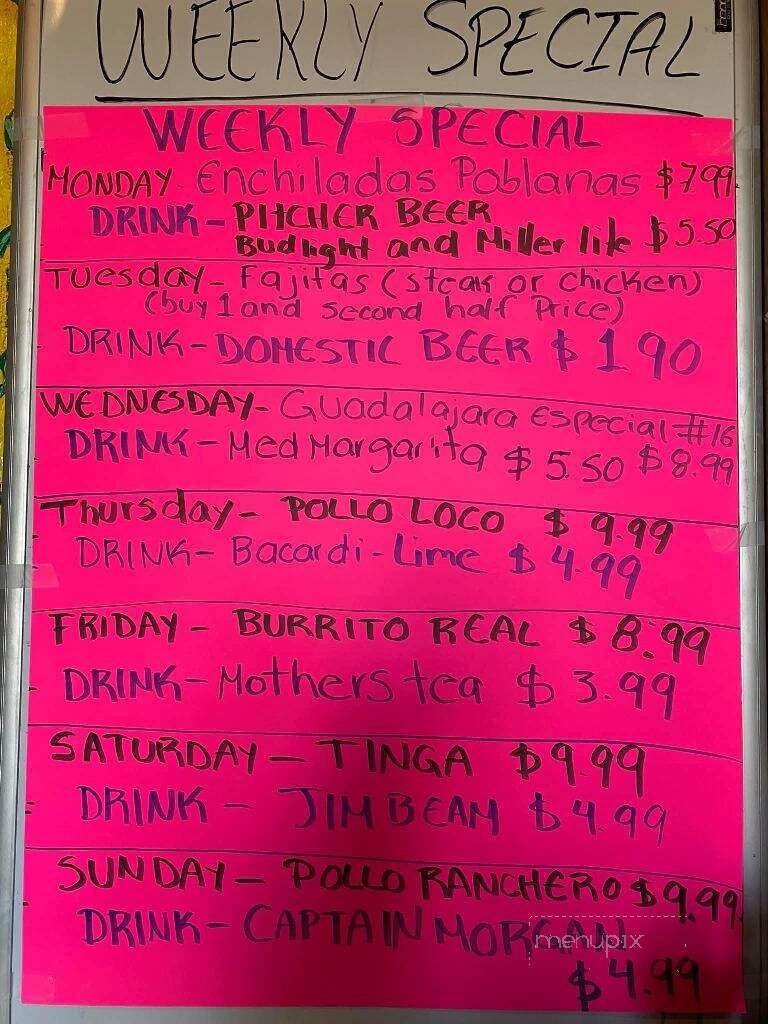 WEEKLY SPECIAL
WEEKLY SPECIAL
MONDAY- Enchiladas Poblanas $7.99
DRINK- PITCHER BEER
Budlight and Miller lite $5.50
Tuesday- Fajitas (steak or chicken)
(buy 1 and second half Price)
DRINK- DOMESTIC BEER $1.90
WEDNESDAY- Guadalajara Especial #16
DRINK- Med Margarita $5.50 $8.99
Thursday- POLLO LOCO $9.99
DRINK- Bacardi-Lime $4.99
FRIDAY- BURRITO REAL $8.99
DRINK- Mothers tea $3.99
SATURDAY- TINGA $9.99
DRINK- JIM BEAM $4.99
SUNDAY- POLLO RANCHERO $9.99
DRINK- CAPTAIN MORGAN
menupix
$4.99